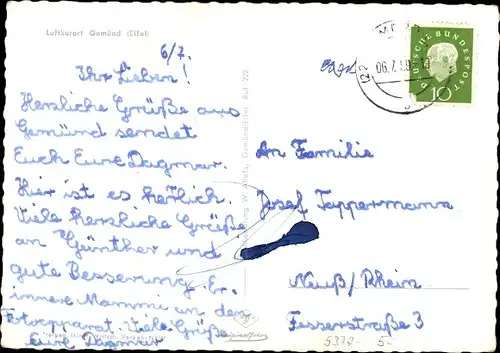 Luftkurort Gemünd (Eifel)
6/7.
Ihr Lieben!
Herzliche Grüße aus
Gemünd sendet
Euch Eure Dagmar.
Hier ist es herlich.
Viele herzliche Grüße
an Günther und
gute Besserung. Er-
innere Mammi an den
Fotoapparat. Viele Grüße
Eure Dagmar
Gemünd/Eifel Ruf 222
DEUTSCHE BUNDESPOST
10
06.7.
An Familie
Josef Tappermann
Neuß/Rhein
Fesserstraße 3
5372- 5-